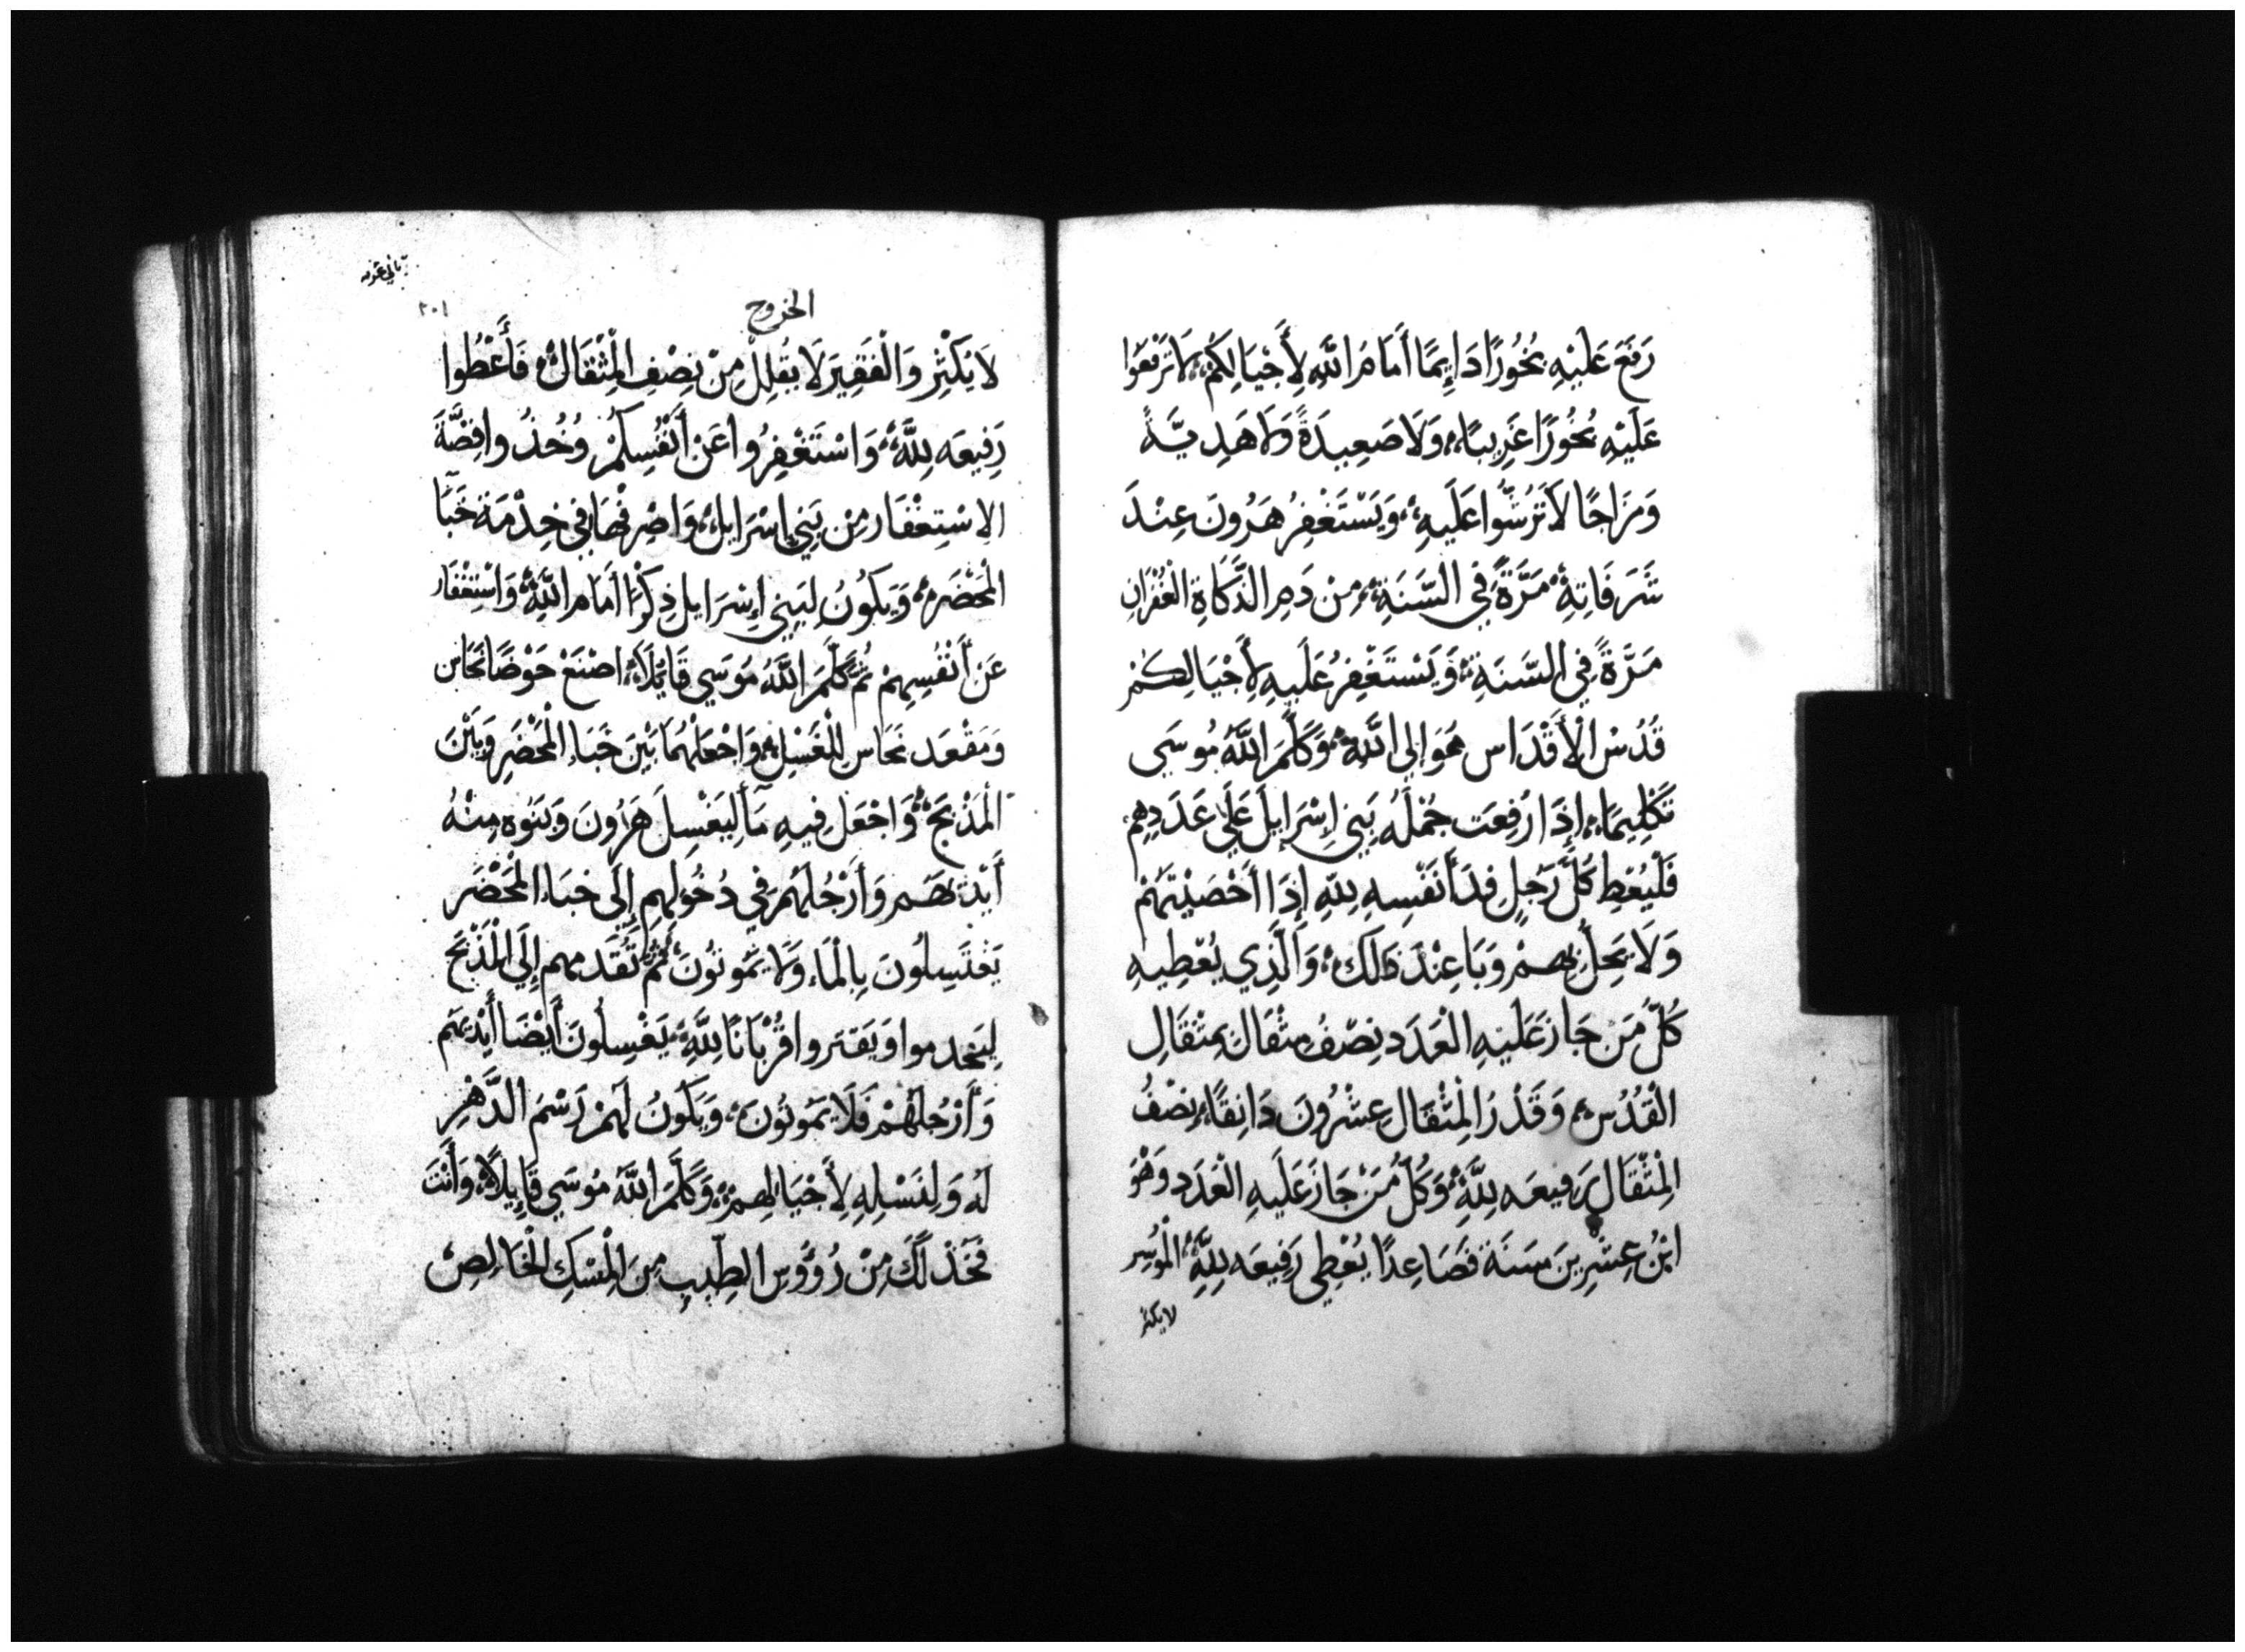 رَفَعَ عَلَيْهِ بَخُورًا دَايِمًا أَمَامَ اللَّهِ لِأَجْيَالِكُمْ، لَا تَرْفَعُوا
عَلَيْهِ بَخُورًا غَرِيبًا، وَلَا صَعِيدَةً وَلَا هَدِيَّةً
وَمَزَاجًا لَا تَرُشُّوا عَلَيهِ، وَيَسْتَغْفِرُ هَرُونَ عِنْدَ
شَرَفَاتِهِ مَرَّةً فِي السَّنَةِ، مِنْ دَمِ الذَّكَاةِ الْغُفْرَانِ
مَرَّةً فِي السَّنَةِ، وَيَسْتَغْفِرُ عَلَيهِ لِأَجْيَالِكُمْ
قُدْسُ الْأَقْدَاس هُوَ إلى اللَّهِ، وَكَلَّمَ اللَّهُ مُوسَى
تَكْلِيمًا، إِذَا رُفِعَت جُمْلَهُ بَنِي إِسْرَايلَ عَلَى عَدَدِهِم
فَلْيُعْطِ كُلَّ رَجُلٍ فِدَأ نَفْسِهِ لِلَّهِ إِذَا أَحْصَيْتَهُمْ
وَلَا يَحِلُّ بِهِمْ وَبَا عِنْدَ ذَلَك، وَالَّذِي يُعْطِيهِ
كُلُّ مَنْ جَازَ عَلَيْهِ الْعَدَد نِصْفُ مِثْقَال بِمِثْقَالِ
الْقُدُس، وَقَدْرُ الْمِثْقَال عِشْرُونَ دَانِقًا، نِصْفُ
الْمِثْقَال رَفِيعَه لِلَّهِ، وَكُلُّ مَنْ جَازَ عَلَيهِ الْعَدَد وَهْوَ
ابْنُ عِشْرِينَ سَنَة فَصَاعِدًا يُعْطِي رَفِيعَه لِلَّهِ، الْمُوسِر
لا يكثر
الخروج
٢٠١
لَا يُكْثِرْ وَالْفَقِيرَ لَا يُقْلِلْ مِنْ نِصْفِ الْمِثْقَالْ، فَأَعْطُوا
رَفِيعَه لِلَّهِ، وَاسْتَغْفِرُوا عَنْ أَنْفُسِكُمْ وُخُذُوا فِضَّةَ
الِاسْتِغْفَار مِنْ بَنِي إِسْرَايل، وَاصْرِفْهَا فِي خِدْمَة خَبَآ
الْمَحْضَرْ، وَيَكُونُ لِبَنِي إِسْرَايل ذِكْرًا أَمَام اللَّهِ، وَاسْتِغْفَار
عَنْ أَنْفُسِهِمْ ثُمَّ كَلَّمَ اللَّهُ مُوسَى قَايِلًا، اصْنَعْ حَوْضًا نُحَاس
وَمَقْعَد نُحَاس لِلْغَسْل، وَاجْعَلْهُمَا بَيْنَ خَبَاءِ الْمَحْضَرِ وَبَيْنَ
الْمَذْبَحْ، وَاجْعَل فِيهِ مَآ لِيَغْسِلَ هَرُونَ وَبَنُوه مِنْهُ
أَيْدِيَهُم وَأَرْجُلَهُمْ فِي دُخُولِهِم إِلَى خبَاء الْمَحْضَر
يَغْتَسِلُونَ بِالْمَاء وَلَا يَمُوتُونَ، ثُمَّ تَقَدمهم إِلَى الْمَذْبَح
لِيَخدموا وَيَقْتَروا قُرْبَانًا لِلَّهِ، يَغْسِلُونَ أَيْضًا أَيْدِيَهُم
وَأَرْجُلَهُمْ فَلَا يَمُوتُونَ، وَيَكُونُ لَهُمْ رَسْمَ الدَّهْرِ
لَهُ وَلِنَسْلِهِ لِأَجْيَالِهِمْ، وَكَلَّمَ اللَّهُ مُوسَى قَايِلًا، وَأَنْتَ
فَخُذْ لَكَ مِنْ رُؤُوس الطِّيبِ مِنَ الْمِسْكِ الْخَالِصْ